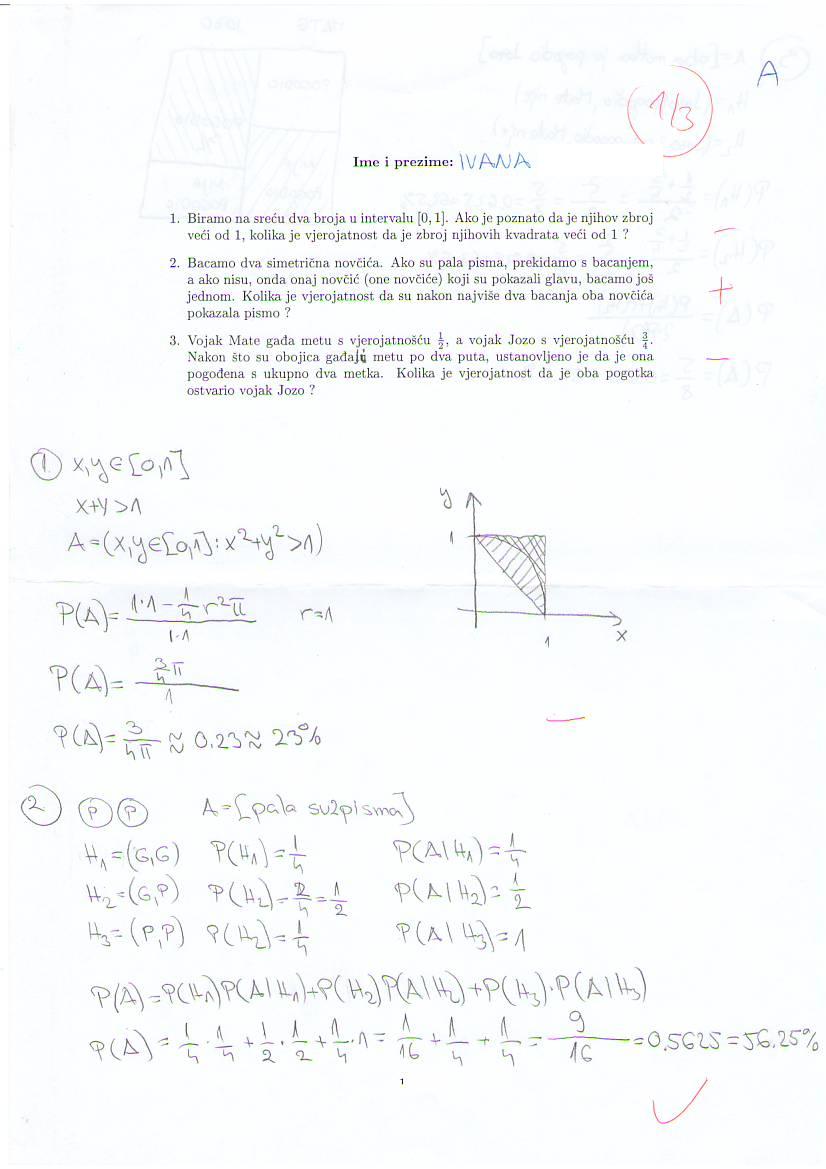 A
1/3
Ime i prezime: IVANA
1. Biramo na sreću dva broja u intervalu [0, 1]. Ako je poznato da je njihov zbroj
veći od 1, kolika je vjerojatnost da je zbroj njihovih kvadrata veći od 1 ?
−
2. Bacamo dva simetrična novčića. Ako su pala pisma, prekidamo s bacanjem,
a ako nisu, onda onaj novčić (one novčiće) koji su pokazali glavu, bacamo još
jednom. Kolika je vjerojatnost da su nakon najviše dva bacanja oba novčića
pokazala pismo ?
+
3. Vojak Mate gađa metu s vjerojatnošću 1/2, a vojak Jozo s vjerojatnošću 3/4.
Nakon što su obojica gađali metu po dva puta, ustanovljeno je da je ona
pogođena s ukupno dva metka. Kolika je vjerojatnost da je oba pogotka
ostvario vojak Jozo ?
−
1. x,y ∈ [0,1]
x+y >1
A=(x,y∈[0,1]: x²+y² >1)
P(A)= (1·1 − 1/4 r²π)/(1·1) r=1
P(A)= (3/4 π)/1
P(A)= 3/(4π) ≈ 0.23 ≈ 23%
−
y
1
1
x
2 P P A=[pala su 2 pisma]
H₁=(G,G) P(H₁)=1/4 P(A|H₁)=1/4
H₂=(G,P) P(H₂)=2/4=1/2 P(A|H₂)=1/2
H₃=(P,P) P(H₂)=1/4 P(A|H₃)=1
P(A)=P(H₁)P(A|H₁)+P(H₂)P(A|H₂)+P(H₃)·P(A|H₃)
P(A)=1/4·1/4+1/2·1/2+1/4·1=1/16+1/4+1/4=9/16=0.5625=56.25%
1